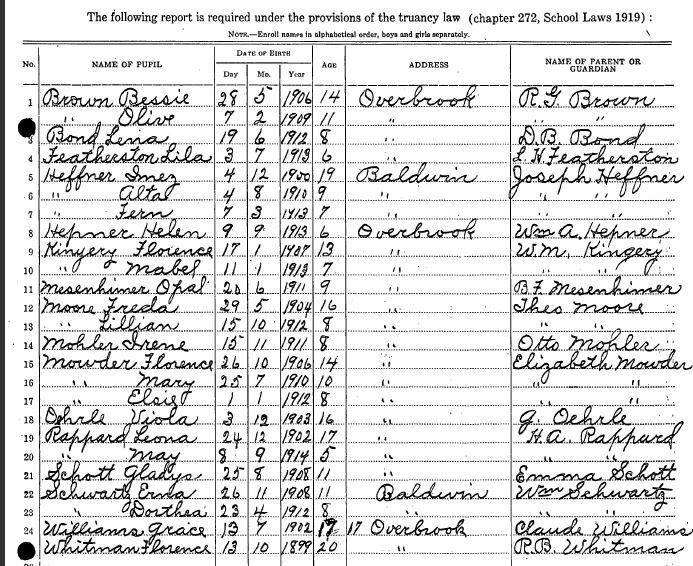 The following report is required under the provisions of the truancy law (chapter 272, School Laws 1919) :
NOTE.—Enroll names in alphabetical order, boys and girls separately.
No. NAME OF PUPIL DATE OF BIRTH Day Mo. Year AGE ADDRESS NAME OF PARENT OR GUARDIAN
1 Brown Bessie 28 5 1906 14 Overbrook R. G. Brown
" Olive 7 2 1909 11 " " "
3 Bond Lena 19 6 1912 8 " D. B. Bond
4 Featherston Lila 3 7 1913 6 " L. H. Featherston
5 Heffner Inez 4 12 1900 19 Baldwin Joseph Heffner
6 " Alta 4 8 1910 9 " " "
7 " Fern 7 3 1913 7 " " "
8 Hepner Helen 9 9 1913 6 Overbrook Wm A. Hepner
9 Kingery Florence 17 1 1907 13 " W. M. Kingery
10 " Mabel 11 1 1913 7 " " "
11 Mesenhimer Opal 20 6 1911 9 " B. F. Mesenhimer
12 Moore Freda 29 5 1904 16 " Theo Moore
13 " Lillian 15 10 1912 8 " " "
14 Mohler Irene 15 11 1911 8 " Otto Mohler
15 Mowder Florence 26 10 1906 14 " Elizabeth Mowder
16 " Mary 25 7 1910 10 " " "
17 " Elsie 1 1 1912 8 " " "
18 Oehrle Viola 3 12 1903 16 " G. Oehrle
19 Rappard Leona 24 12 1902 17 " H. A. Rappard
20 " May 8 9 1914 5 " " "
21 Schott Gladys 25 8 1908 11 " Emma Schott
22 Schwartz Erma 26 11 1908 11 Baldwin Wm Schwartz
23 " Dorthea 23 4 1912 8 " " "
24 Williams Grace 13 7 1902 17 17 Overbrook Claude Williams
Whitman Florence 13 10 1899 20 " R. B. Whitman